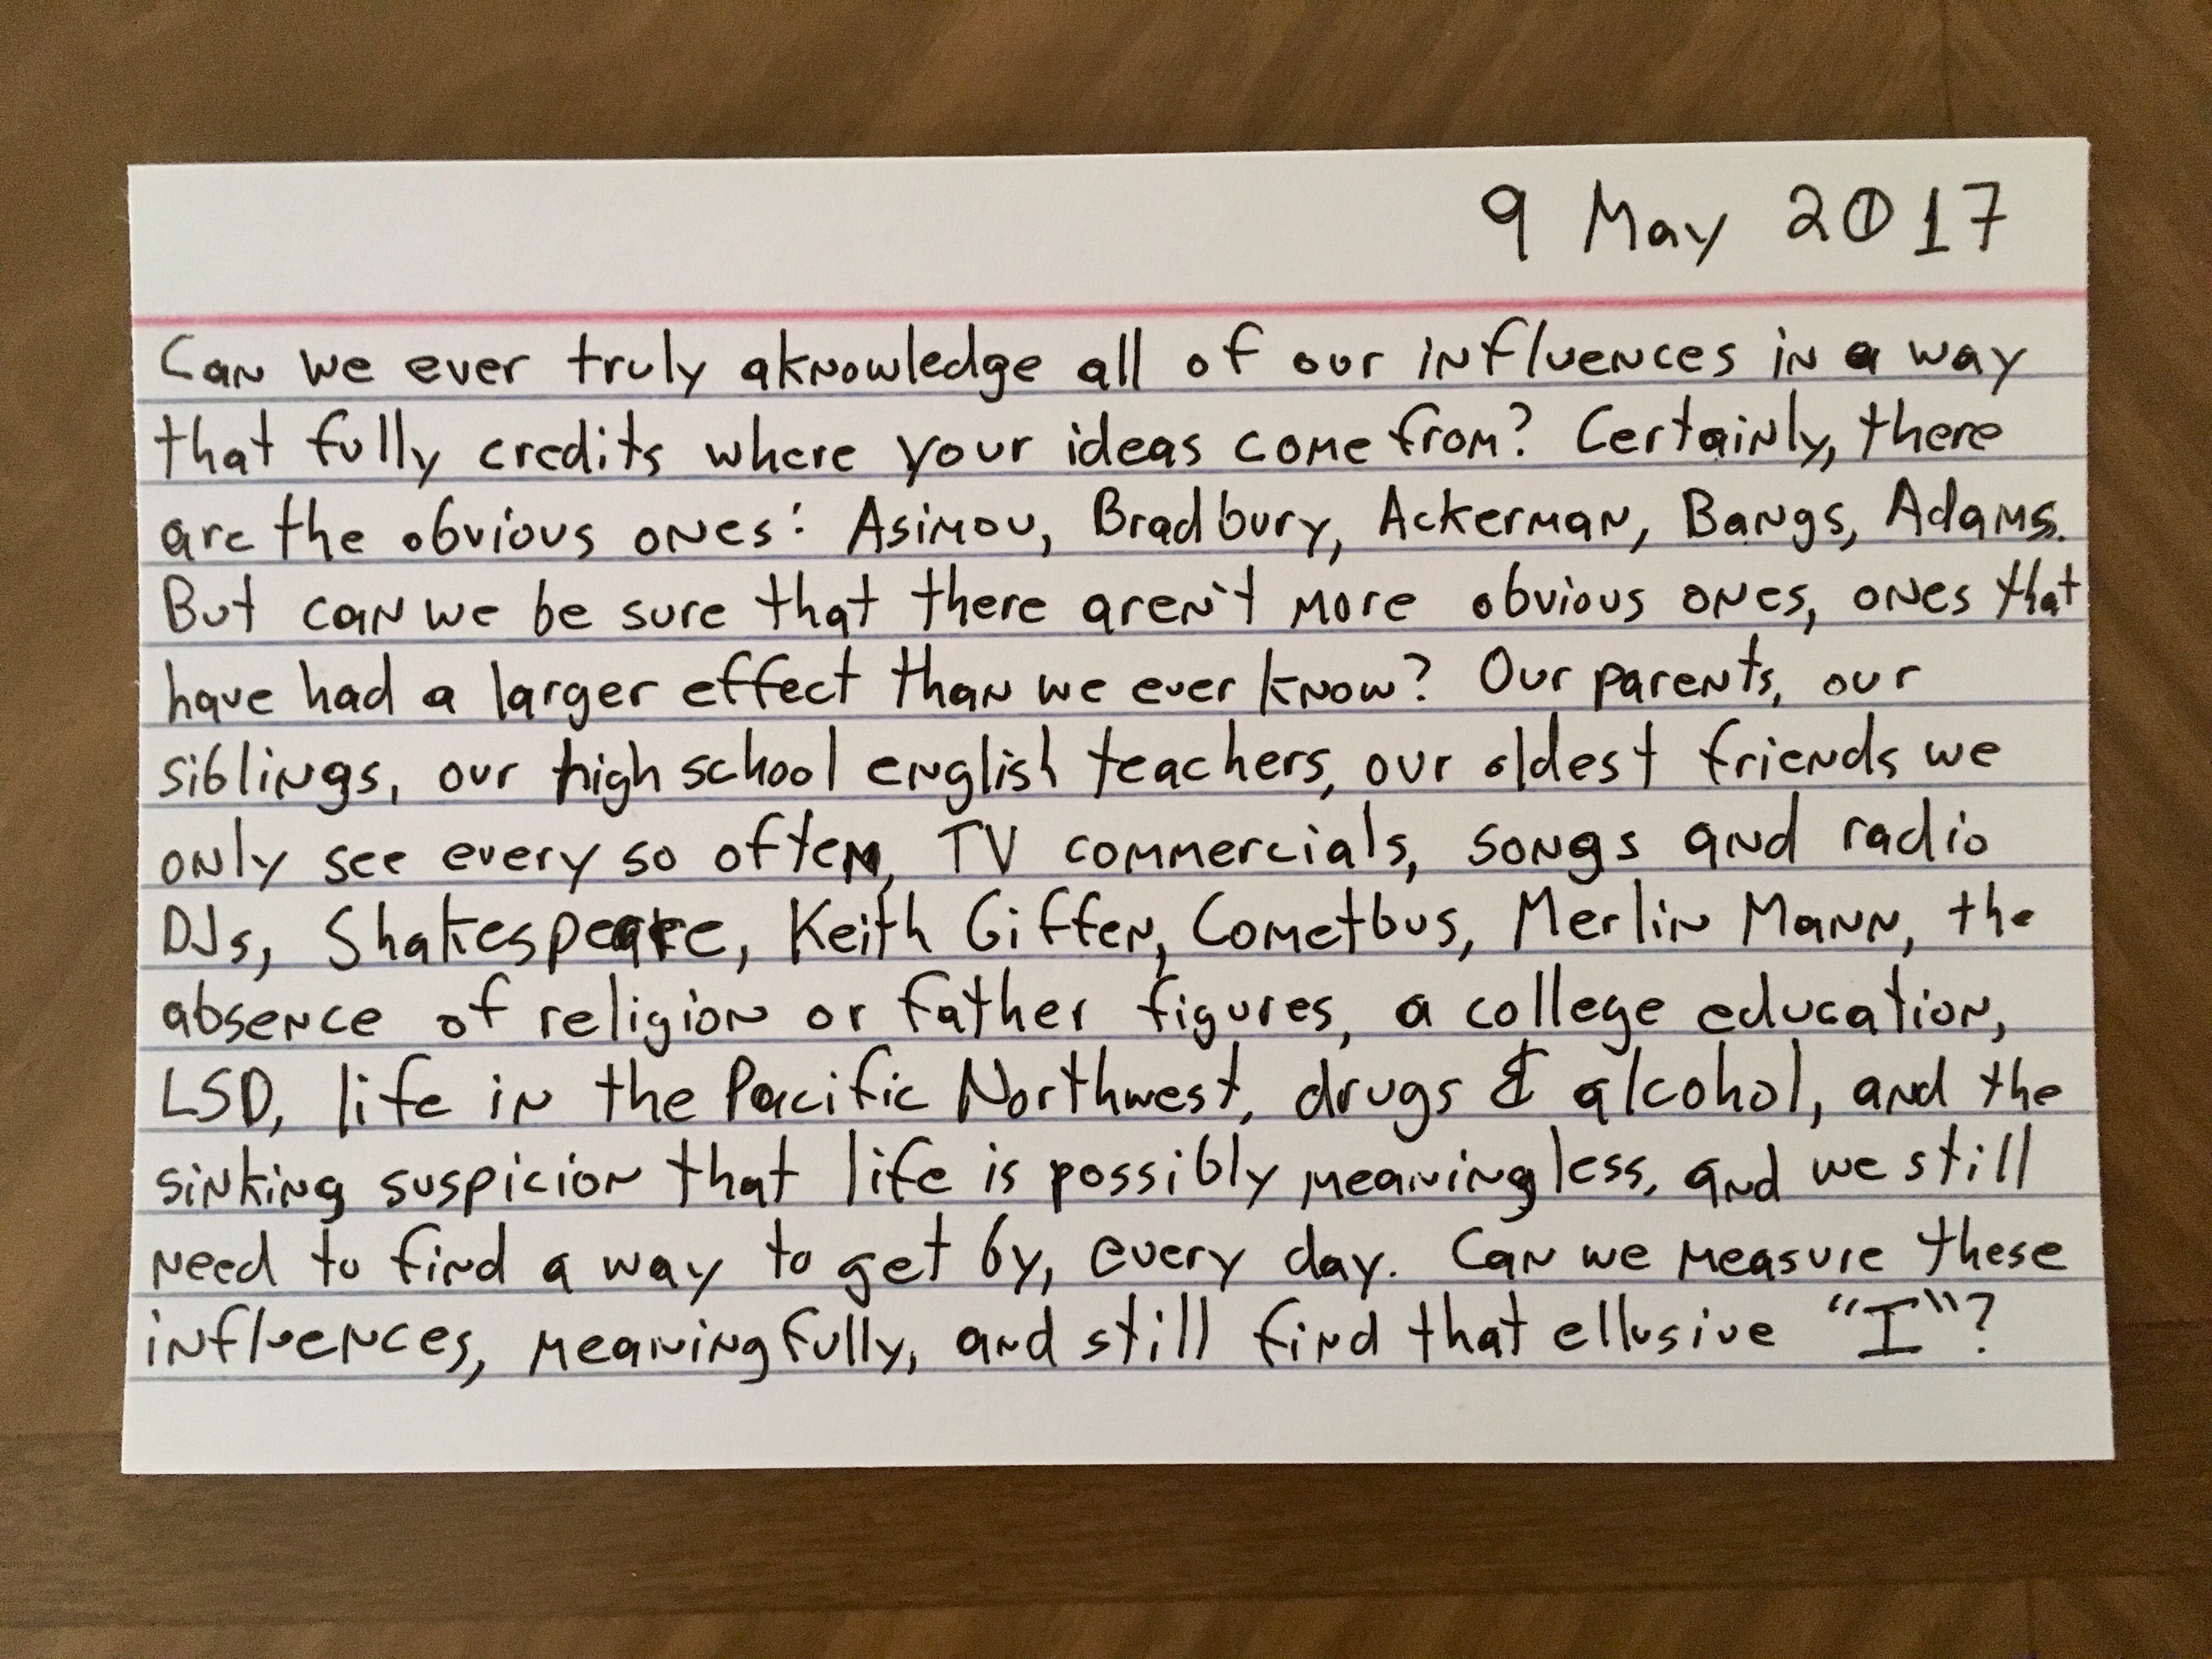 9 May 2017
Can we ever truly aknowledge all of our influences in a way
that fully credits where your ideas come from? Certainly, there
are the obvious ones: Asimov, Bradbury, Ackerman, Bangs, Adams.
But can we be sure that there aren't more obvious ones, ones that
have had a larger effect than we ever know? Our parents, our
siblings, our high school english teachers, our oldest friends we
only see every so often, TV commercials, songs and radio
DJs, Shakespeare, Keith Giffen, Cometbus, Merlin Mann, the
absence of religion or father figures, a college education,
LSD, life in the Pacific Northwest, drugs & alcohol, and the
sinking suspicion that life is possibly meaningless, and we still
need to find a way to get by, every day. Can we measure these
influences, meaningfully, and still find that ellusive "I"?